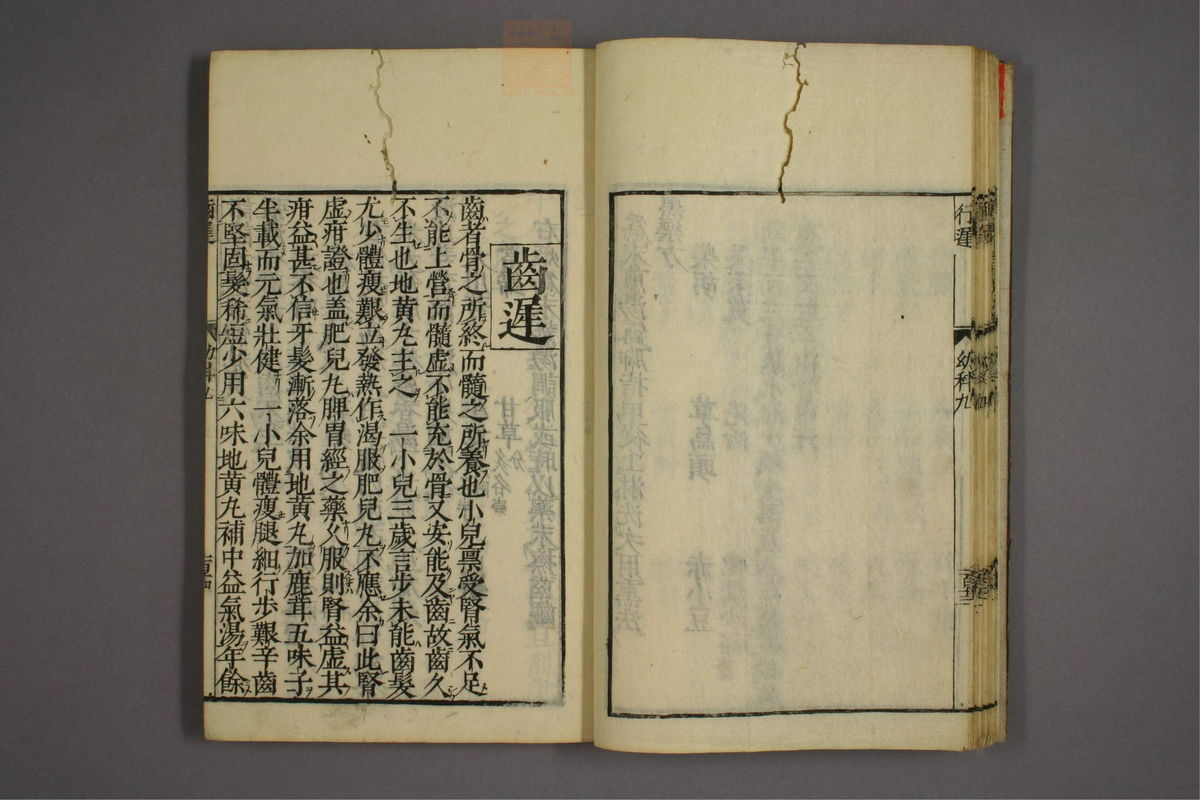 行遲
幼科九
齒遲
齒者骨之所終而髓之所養也小兒禀受腎氣不足
不能上營而髓虛不能充於骨又安能及齒故齒久
不生也地黃丸主之 一小兒三歲言步未能齒髮
尤少體瘦艱立發熱作渴服肥兒丸不應余曰此腎
虛疳證也盖肥兒丸脾胃經之藥久服則腎益虛其
疳益甚不信牙髮漸落余用地黃丸加鹿茸五味子
半載而元氣壯健 一小兒體瘦腿細行步艱辛齒
不堅固髮稀短少用六味地黃丸補中益氣湯年餘